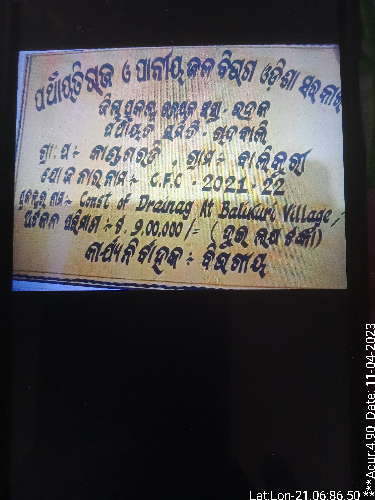 ପଞ୍ଚାୟତିରାଜ ଓ ପାନୀୟ ଜଳ ବିଭାଗ ଓଡ଼ିଶା ସରକାର
ଜିଲ୍ଲା - ଭଦ୍ରକ
ପଞ୍ଚାୟତ ସମିତି - ଚାନ୍ଦବାଲି
ଗ୍ରା. ପଂ:- , ଗ୍ରାମ:- ବାଲିକୁରୀ
ଯୋଜନାର ନାମ:- C.F.C - 2021-22
ନାମ:- Const of Drainag At Balikuri Village /
ଅଟକଳ ପରିମାଣ:- ଟ. ୨,00,000/= (ଦୁଇ ଲକ୍ଷ ଟଙ୍କା)
କାର୍ଯ୍ୟନିର୍ବାହକ:- ବିଭାଗୀୟ
Lat:Lon-21.06:86.50
***Acur:4.90 Date: 11-04-2023